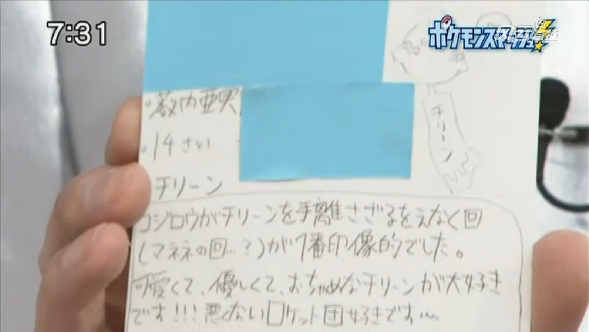 7:31
ポケモンスマッシュ!
・薮内亜実
・14さい
チリーン
チリーン
コジロウがチリーンを手離さざるをえなく回
(マネネの回…?)が1番印像的でした。
可愛くて、優しくて、おちゃめなチリーンが大好き
です!!!悪くないロケット団好きです…